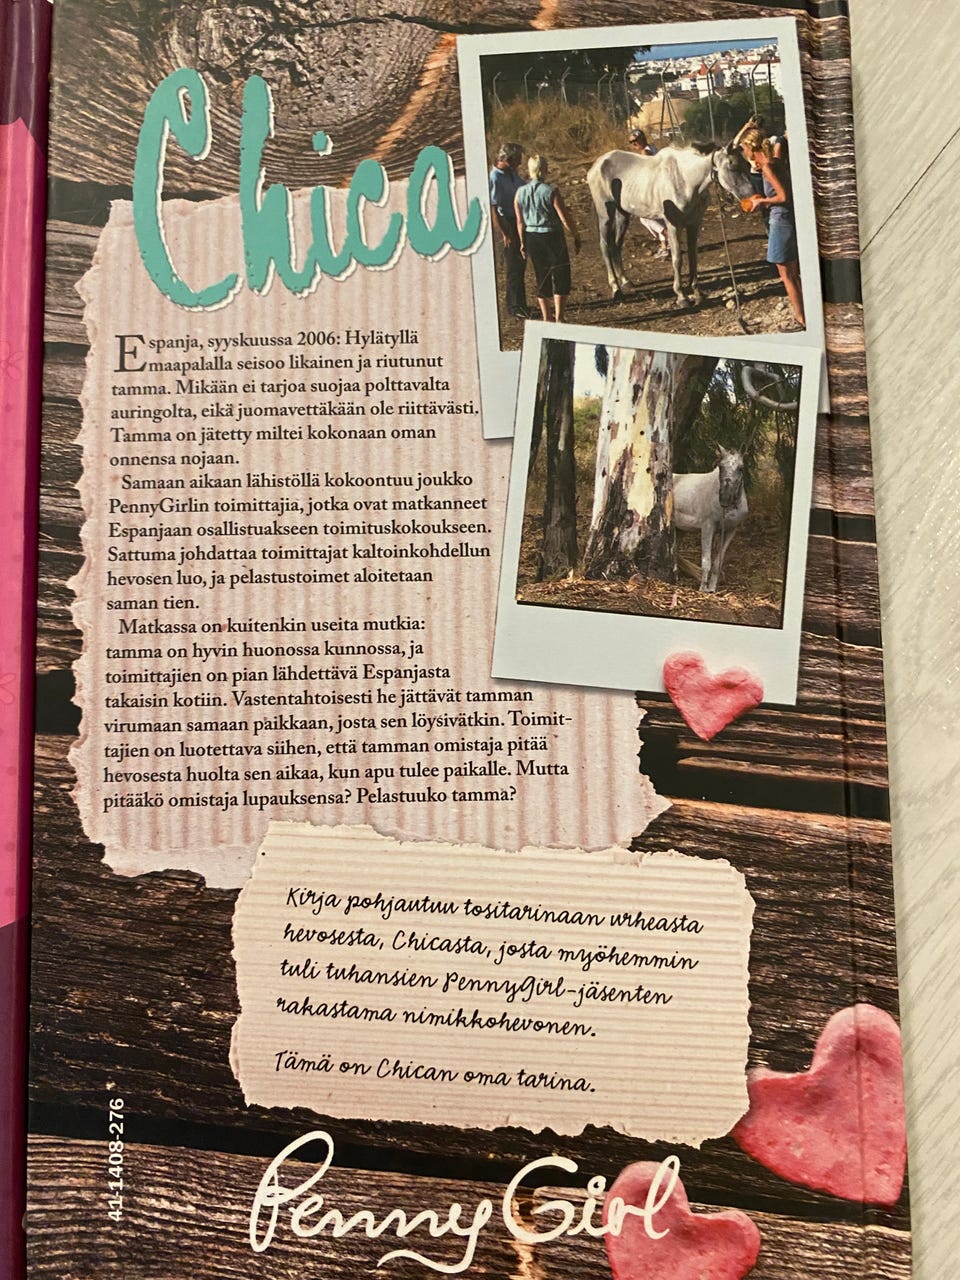 Chica
Espanja, syyskuussa 2006: Hylätyllä
maapalalla seisoo likainen ja riutunut
tamma. Mikään ei tarjoa suojaa polttavalta
auringolta, eikä juomavettäkään ole riittävästi.
Tamma on jätetty miltei kokonaan oman
onnensa nojaan.
Samaan aikaan lähistöllä kokoontuu joukko
PennyGirlin toimittajia, jotka ovat matkanneet
Espanjaan osallistuakseen toimituskokoukseen.
Sattuma johdattaa toimittajat kaltoinkohdellun
hevosen luo, ja pelastustoimet aloitetaan
saman tien.
Matkassa on kuitenkin useita mutkia:
tamma on hyvin huonossa kunnossa, ja
toimittajien on pian lähdettävä Espanjasta
takaisin kotiin. Vastentahtoisesti he jättävät tamman
virumaan samaan paikkaan, josta sen löysivätkin. Toimit-
tajien on luotettava siihen, että tamman omistaja pitää
hevosesta huolta sen aikaa, kun apu tulee paikalle. Mutta
pitääkö omistaja lupauksensa? Pelastuuko tamma?
Kirja pohjautuu tositarinaan urheasta
hevosesta, Chicasta, josta myöhemmin
tuli tuhansien PennyGirl-jäsenten
rakastama nimikkohevonen.
Tämä on Chican oma tarina.
41-1408-276
Penny Girl